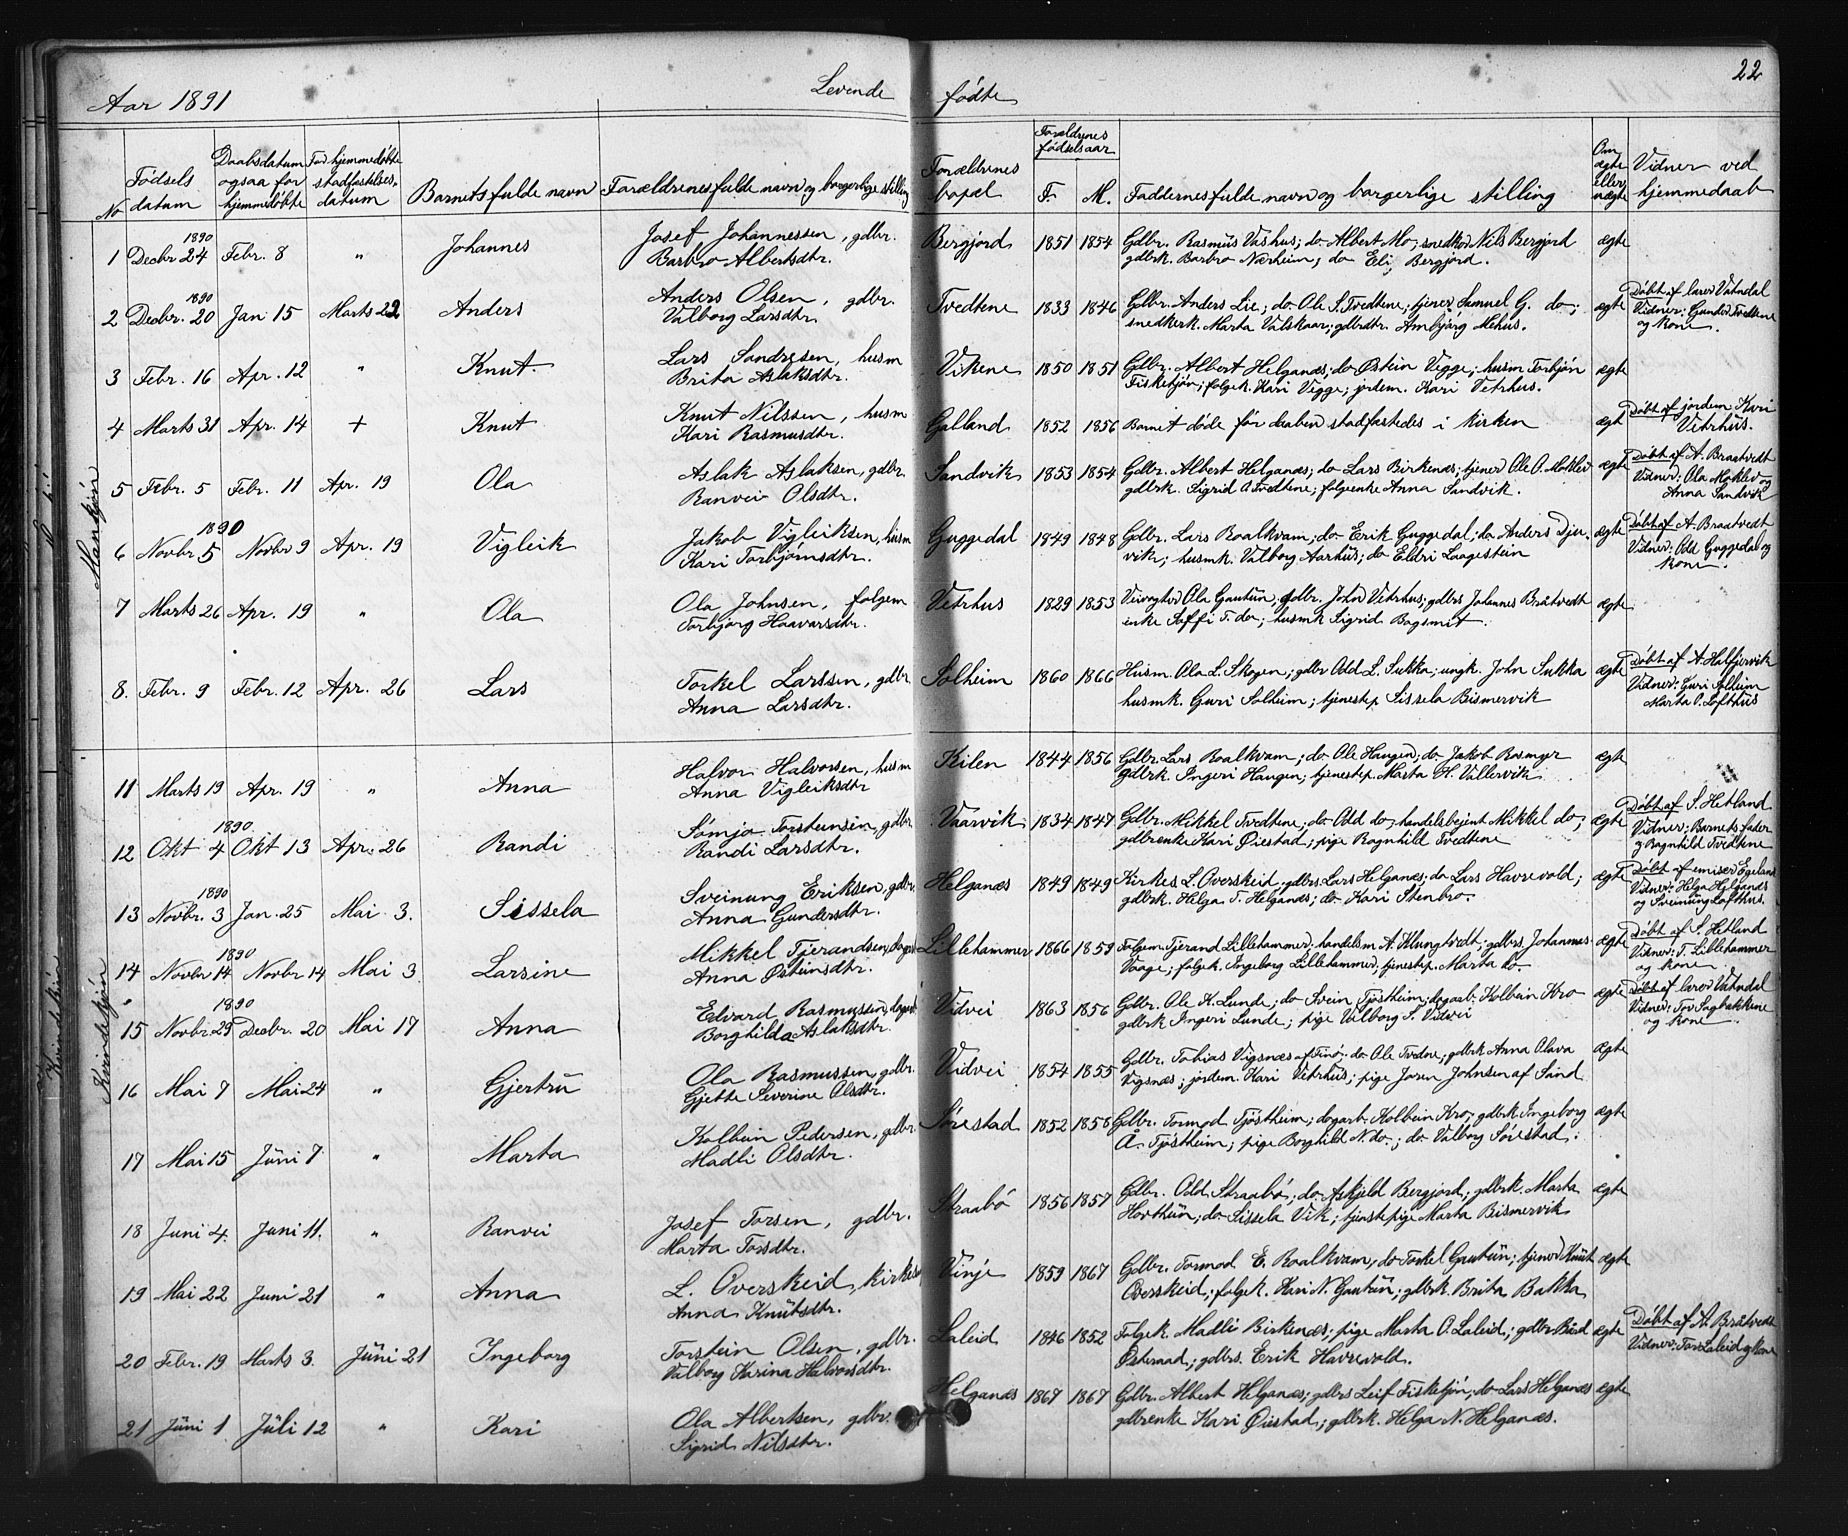 22
Aar 1891 Levende fødte
No Fødsels datum Daabsdatum ogsaa for hjemmedøbte For hjemmedøbte stadfæstelses. datum Barnets fulde navn Forældrenes fulde navn og borgerlige stilling Forældrenes bopæl Forældrenes fødselsaar F. M. Faddernes fulde navn og borgerlige stilling Om ægte eller uægte Vidner ved hjemmedaab
Mandkjøn
1 Decbr 24 1890 Febr. 8 " Johannes Josef Johannessen, gdbr. Bergjord 1851 1854 Gdbr. Rasmus Vashus; do Albert Mo; snedker Nils Bergjord ægte
Barbro Albertsdtr. gdbrk. Barbro Nærheim; do Eli Bergjord.
2 Decbr. 20 1890 Jan 15 Marts 22 Anders Anders Olsen, gdbr. Tvedtene 1833 1846 Gdbr. Anders Lie; do Ole S. Tvedtene; tjener Samuel G. do; ægte Døbt af lærer Vatndal
Valborg Larsdtr. snedkerk. Marta Valskaar; gdbrdtr. Ambjørg Mehus. Vidner: Gunder Tvedtene
og kone.
3 Febr. 16 Apr. 12 " Knut Lars Sandresen, husm Vikene 1850 1851 Gdbr. Albert Helganæs; do Østein Vegge; husm Torbjøn ægte
Brita Aslaksdtr. Fisketjøn; folgek. Kari Vegge; jordem. Kari Vetrhus.
4 Marts 31 Apr. 14 + Knut Knut Nilssen, husm Galland 1852 1856 Barnet døde før daaben stadfæstedes i kirken ægt Døbt af jordem Kari
Kari Rasmusdtr. Vetrhus.
5 Febr. 5 Febr. 11 Apr. 19 Ola Aslak Aslaksen, gdbr. Sandvik 1853 1854 Gdbr. Albert Helganæs; do Lars Birkenæs; tjener Ole O. Moklev ægte Døbt af A. Braatvedt
Ranvei Olsdtr. gdbrk. Sigrid A Tvedtene; folgeenke Anna Sandvik. Vidner: Ola Moklev og
Anna Sandvik
6 Novbr. 5 1890 Novbr 9 Apr. 19 Vigleik Jakob Vigleiksen, husm Guggedal 1849 1848 Gdbr. Lars Roalkvam; do Erik Guggedal; do Anders Dju- ægte Døbt af A. Braatvedt
Kari Torbjørnsdtr. vik; husmk. Valborg Aarhus; do Eldri Laagestein Vidner: Odd Guggedal og
kone.
7 Marts 26 Apr. 19 " Ola Ola Johnsen, folgem Vetrhus 1829 1853 Veivogter Ola Gautun; gdbr. John Vetrhus; gdbrs Johannes Bråtvedt ægte
Torbjørg Haavarsdtr. enke Soffi T. do; husmk Sigrid Bogsmit.
8. Febr. 9 Febr. 12 Apr. 26 Lars Torkel Larssen, gdbr. Solheim 1860 1866 Husm. Ola L. Skogen; gdbr Odd L. Sukka; ungk. John Sukka ægte Døbt af A. Halfjervik
Anna Larsdtr. husmk. Guri Solheim; tjenestep Sissela Bismervik Vidner: Guri Solheim
Marta O. Lofthus
Kvindekjøn
11 Marts 19 Apr. 19 " Anna Halvor Halvorsen, husm Kilen 1844 1856 Gdbr. Lars Roalkvam; do Ole Haugen; do Jakob Rosmyr ægte
Anna Vigleiksdtr gdbrk. Ingeri Haugen; tjenestep. Marta H. Villervik
12 Okt 4 1890 Okt 13 Apr. 26 Randi Sømja Torsteinsen, gdbr. Vaarvik 1834 1847 Gdbr. Mikkel Tvedtene; do Odd do; handelsbetjent Mikkel do; ægte Døbt af S. Hetland
Randi Larsdtr. gdbrenke Kari Øiestad; pige Ragnhild Tvedtene Vidner: Barnets fader
og Ragnhild Tvedtene
13 Novbr. 3 1890 Jan. 25 Mai 3. Sissela Sveinung Eriksen, gdbr. Helganæs 1849 1849 Kirkes L. Overskeid; gdbrs. Lars Helganes; do Lars Havrevold; ægte Døbt af emiser Egeland
Anna Gundersdtr. gdbrk. Helga T. Helganæs; do Kari Stenbro. Vidner: Helga Helganæs
og Sveinung Lofthus.
14 Novbr 14. 1890 Novbr 14 Mai 3 Larsine Mikkel Tjerandsen, dagarb Lillehammer 1866 1859 Folgem Tjerand Lillehammer; handelsm A. Klungtvedt; gdbrs. Johannes ægte Døbt af S. Hetland
Anna Østeinsdtr. Vaage; folgek. Ingeborg Lillehammer, tjenestep. Marta do. Vidner: T. Lillehammer
og kone
15 Novbr. 29 1890 Decbr. 20 Mai 17 Anna Edvard Rasmussen, dagarb Vidvei 1863 1856 Gdbr. Ole K. Lunde; do Svein Tjøstheim; dagarb. Kolbein Kro ægte Døbt af lærer Vatndal
Borghilda Aslaksdtr. gdbrk Ingeri Lunde; pige Valborg S. Vidvei Vidner: Tor Sagbakkene
og kone
16 Mai 7 Mai 24 " Gjertru Ola Rasmussen, gdbr. Vidvei 1854 1855 Gdbr. Tobias Vigsnæs af Finø; do Ole Tvedne; gdbrk Anna Olava ægte
Gjette Severine Olsdtr. Vigsnæs; jordem. Kari Vetrhus; pige Joren Johnsen af Sand
17 Mai 15 Juni 7 " Marta Kolbein Pedersen, gdbr. Sørestad 1852 1858 Gdbr. Tormod Tjøstheim; dagarb. Kolbein Kro; gdbrk Ingeborg ægte
Madli Olsdtr. Å. Tjøstheim; pige Borghild N. do.; do Valborg Sørestad.
18 Juni 4. Juni 11. " Ranvei Josef Torsen, gdbr. Straabø 1856 1857 Gdbr. Odd Straabø; do Askjeld Bergjord; gdbrk. Marta ægte
Marta Torsdtr. Hovthun; do Sissela Vik; tjenstepige Marta Bismervik
19 Mai 22 Juni 21 " Anna L. Overskeid, kirkes Vinje 1859 1867 Gdbr. Tormod E. Roalkvam; do Torkel Gautun; tjener Knut ægte
Anna Knutsdtr. Overskeid; folgek. Kari N. Gautun; gdbrk. Brita Bakka
20 Febr. 19 Marts 3. Juni 21 Ingeborg Torstein Olsen, gdbr. Laleid 1846 1852 Folgek. Madli Birkenæs; pige Marta O. Laleid; gdbr Bård ægte Døbt af A. Bråtvedt
Valborg Karina Halvorsdtr. Østeraad; gdbrs. Erik Havrevold. Vidner: Tor Laleid og kone
21 Juni 1 Juli 12 " Kari Ola Albertsen, gdbr. Helganæs 1867 1867 Gdbr. Albert Helganæs; gdbrs Leif Fisketjøn; do Lars Helganæs ægte
Sigrid Nilsdtr. gdbrenke Kari Øiestad; gdbrk. Helga N. Helganæs.